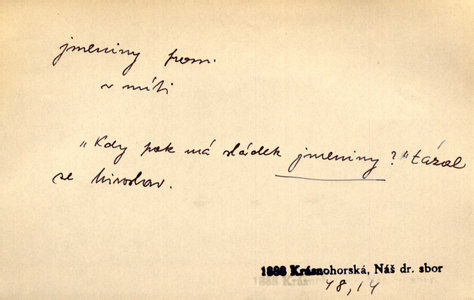 jmeniny pom.
v míti
„Kdy pak má sládek jmeniny?" tázal
se Miroslav.
1888 Krásnohorská, Náš dr. sbor
48,14